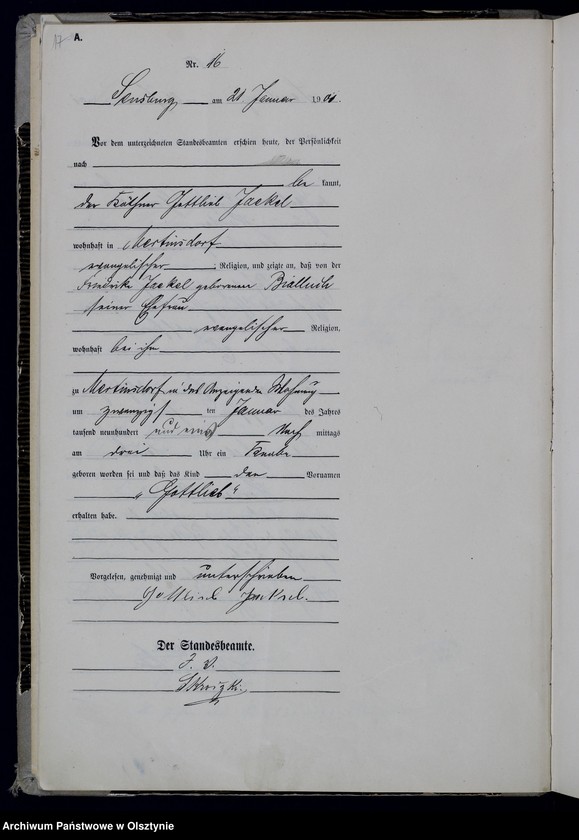 17
A.
Nr. 16
Sensburg am 21 Januar 1901.
Vor dem unterzeichneten Standesbeamten erschien heute, der Persönlichkeit
nach
be kannt,
der Käthner Gottlieb Jaekel
wohnhaft in Mertinsdorf
evangelischer Religion, und zeigte an, daß von der
Friedrike Jaekel geborenen
seiner Ehefrau
evangelischer Religion,
wohnhaft bei ihm
zu Mertinsdorf in des Anzeigenden Wohnung
am zwanzigsten ten Januar des Jahres
tausend neunhundert und eins Nach mittags
um drei Uhr ein Knabe
geboren worden sei und daß das Kind den Vornamen
„Gottlieb“
erhalten habe.
Vorgelesen, genehmigt und unterschrieben
Gottlieb Jaekel.
Der Standesbeamte.
J. V.
Archiwum Państwowe w Olsztynie